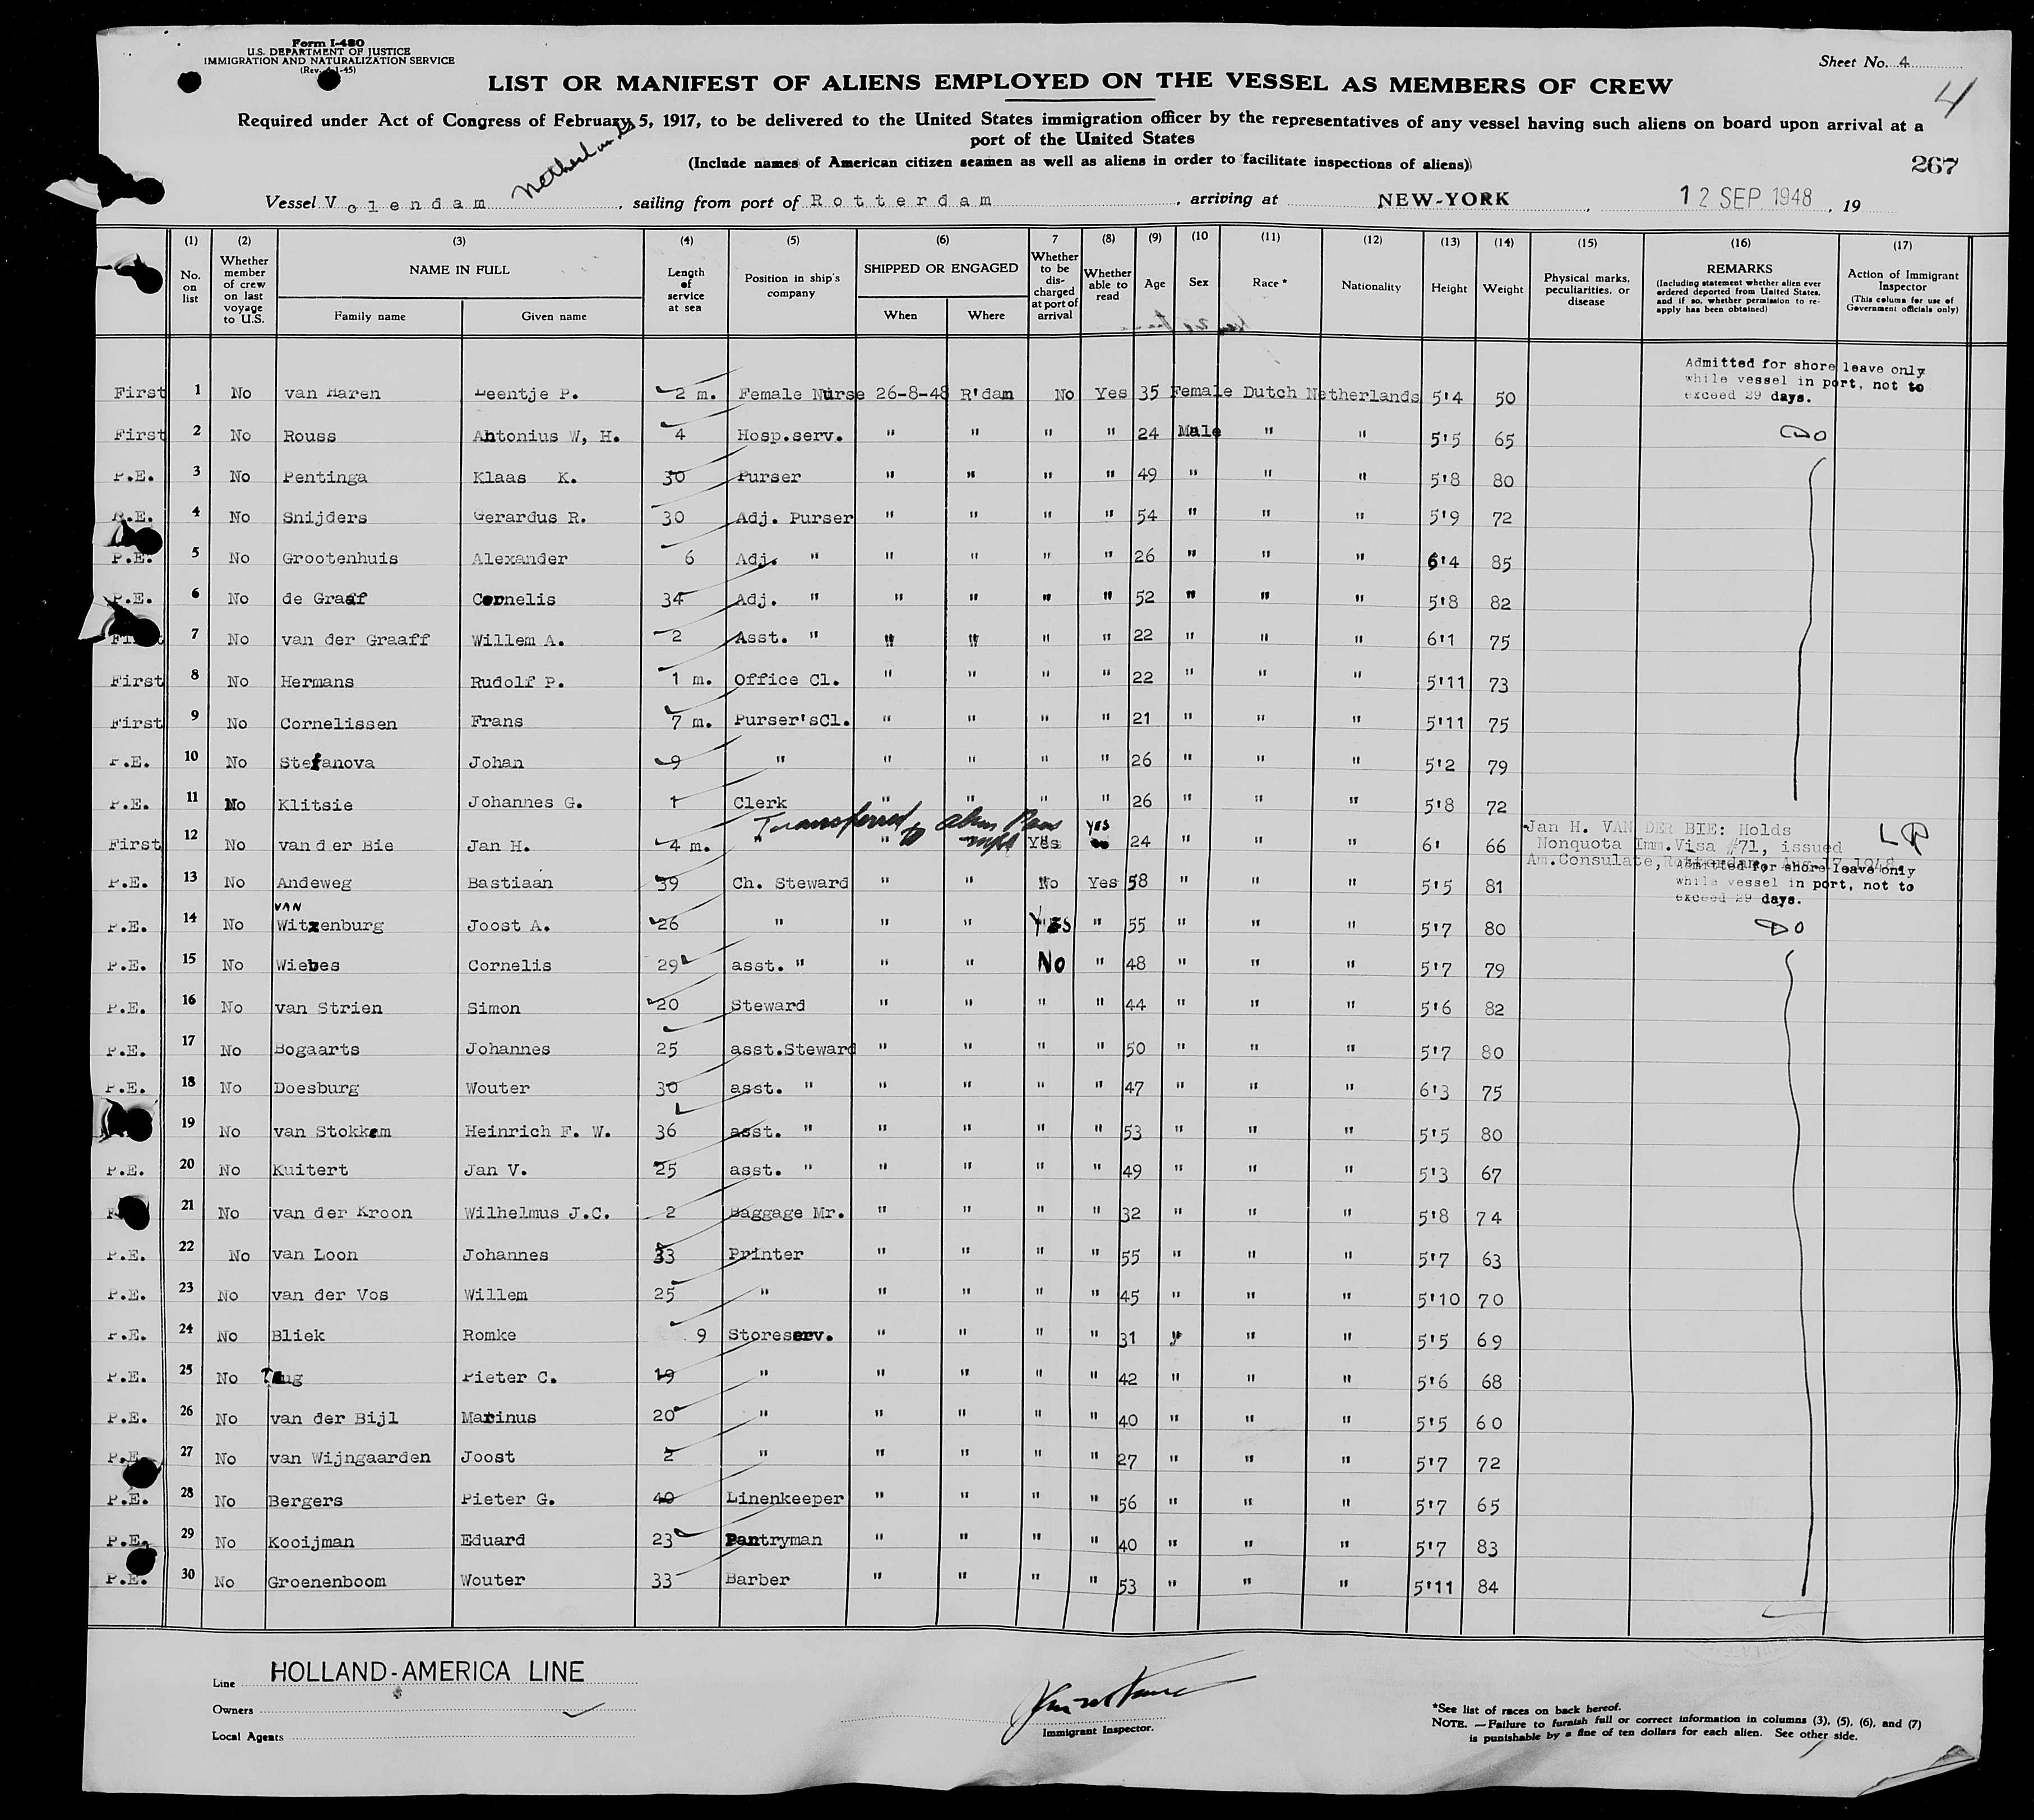 Form I-480
U.S. DEPARTMENT OF JUSTICE
IMMIGRATION AND NATURALIZATION SERVICE
(Rev. 4-1-45)
Sheet No. 4
4
LIST OR MANIFEST OF ALIENS EMPLOYED ON THE VESSEL AS MEMBERS OF CREW
Required under Act of Congress of February 5, 1917, to be delivered to the United States immigration officer by the representatives of any vessel having such aliens on board upon arrival at a
port of the United States
(Include names of American citizen seamen as well as aliens in order to facilitate inspections of aliens)
267
Netherlands
Vessel Volendam, sailing from port of Rotterdam, arriving at NEW-YORK, 12 SEP 1948, 19
(1) (2) (3) (4) (5) (6) 7 (8) (9) (10 (11) (12) (13) (14) (15) (16) (17)
No. on list
Whether member of crew on last voyage to U.S.
NAME IN FULL
Family name
Given name
Length of service at sea
Position in ship's company
SHIPPED OR ENGAGED
When
Where
Whether to be discharged at port of arrival
Whether able to read
Age
Sex
Race *
Nationality
Height
Weight
Physical marks, peculiarities, or disease
REMARKS
(Including statement whether alien ever ordered deported from United States, and if so, whether permission to reapply has been obtained)
Action of Immigrant Inspector
(This column for use of Government officials only)
Admitted for shore leave only
while vessel in port, not to
exceed 29 days.
First 1 No van Haren Leentje P. 2 m. Female Nurse 26-8-48 R'dam No Yes 35 Female Dutch Netherlands 5'4 50
First 2 No Rouss Antonius W, H. 4 Hosp.serv. " " " " 24 Male " " 5'5 65 DO
P.E. 3 No Pentinga Klaas K. 30 Purser " " " " 49 " " " 5'8 80
P.E. 4 No Snijders Gerardus R. 30 Adj. Purser " " " " 54 " " " 5'9 72
P.E. 5 No Grootenhuis Alexander 6 Adj. " " " " " 26 " " " 6'4 85
P.E. 6 No de Graaf Cornelis 34 Adj. " " " " " 52 " " " 5'8 82
First 7 No van der Graaff Willem A. 2 Asst. " " " " " 22 " " " 6'1 75
First 8 No Hermans Rudolf P. 1 m. Office Cl. " " " " 22 " " " 5'11 73
First 9 No Cornelissen Frans 7 m. Purser'sCl. " " " " 21 " " " 5'11 75
P.E. 10 No Stefanova Johan 9 " " " " " 26 " " " 5'2 79
P.E. 11 No Klitsie Johannes G. 1 Clerk " " " " 26 " " " 5'8 72
Transferred to alien Pass
YES
First 12 No van d er Bie Jan H. 4 m. " " Yes 24 " " " 6' 66
Jan H. VAN DER BIE: Holds
Nonquota Imm.Visa #71, issued
Am.Consulate, Rotterdam, Aug 17 1948
Admitted for shore leave only
while vessel in port, not to
exceed 29 days.
P.E. 13 No Andeweg Bastiaan 39 Ch. Steward " " No Yes 58 " " " 5'5 81
VAN
P.E. 14 No Witzenburg Joost A. 26 " " " Yes " 55 " " " 5'7 80 DO
P.E. 15 No Wiebes Cornelis 29 asst. " " " No " 48 " " " 5'7 79
P.E. 16 No van Strien Simon 20 Steward " " " " 44 " " " 5'6 82
P.E. 17 No Bogaarts Johannes 25 asst.Steward " " " " 50 " " " 5'7 80
P.E. 18 No Doesburg Wouter 30 asst. " " " " " 47 " " " 6'3 75
19 No van Stokkem Heinrich F. W. 36 asst. " " " " " 53 " " " 5'5 80
P.E. 20 No Kuitert Jan V. 25 asst. " " " " " 49 " " " 5'3 67
21 No van der Kroon Wilhelmus J.C. 2 Baggage Mr. " " " " 32 " " " 5'8 74
P.E. 22 No van Loon Johannes 33 Printer " " " " 55 " " " 5'7 63
P.E. 23 No van der Vos Willem 25 " " " " " 45 " " " 5'10 70
P.E. 24 No Bliek Romke 9 Storeserv. " " " " 31 " " " 5'5 69
P.E. 25 No Pieter C. 19 " " " " " 42 " " " 5'6 68
P.E. 26 No van der Bijl Marinus 20 " " " " " 40 " " " 5'5 60
P.E. 27 No van Wijngaarden Joost 2 " " " " " 27 " " " 5'7 72
P.E. 28 No Bergers Pieter G. 40 Linenkeeper " " " " 56 " " " 5'7 65
P.E. 29 No Kooijman Eduard 23 Pantryman " " " " 40 " " " 5'7 83
P.E. 30 No Groenenboom Wouter 33 Barber " " " " 53 " " " 5'11 84
Line HOLLAND-AMERICA LINE
Owners
Local Agents
Immigrant Inspector.
*See list of races on back hereof.
NOTE. —Failure to furnish full or correct information in columns (3), (5), (6), and (7)
is punishable by a fine of ten dollars for each alien. See other side.